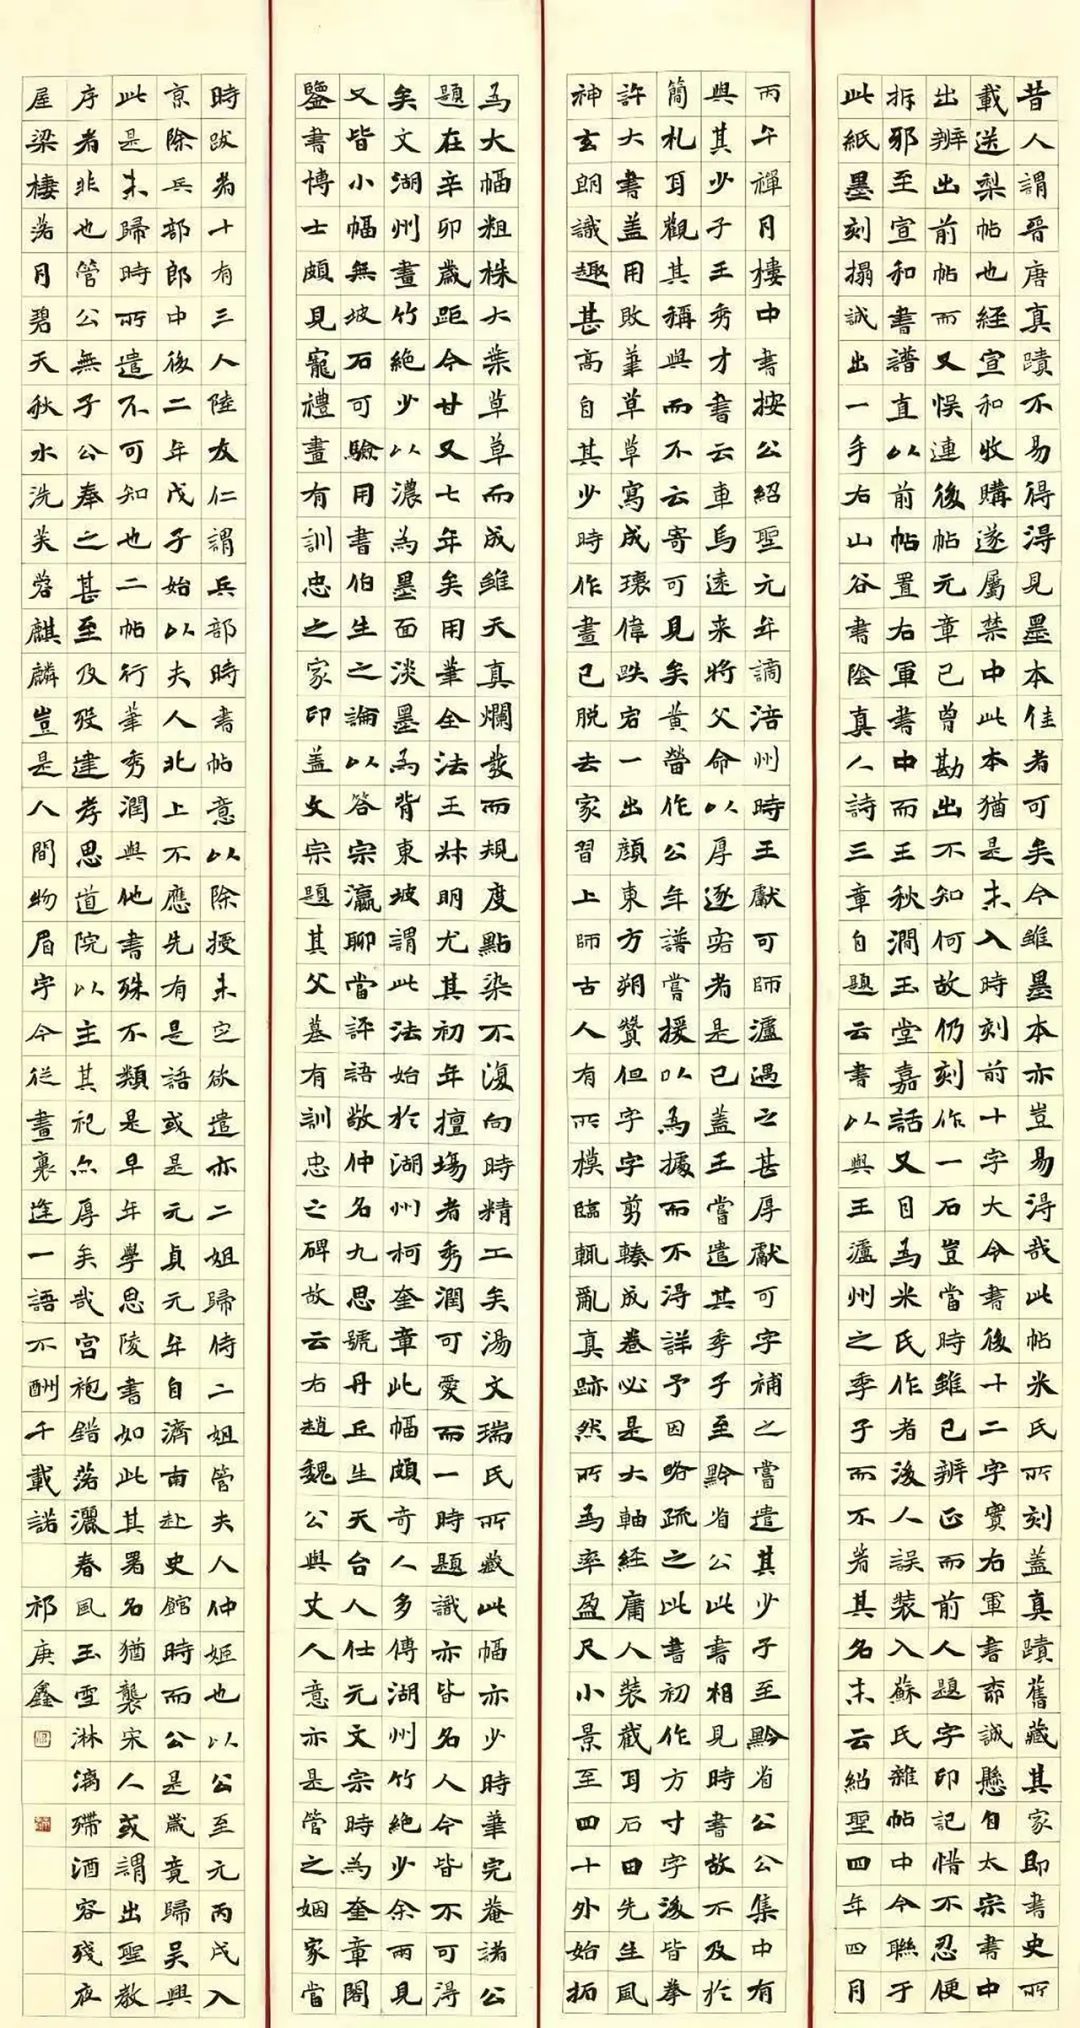 昔人謂晋唐真蹟不易得淂見墨本佳者可矣今雖墨本亦豈易淂哉此帖米氏所刻蓋真蹟舊藏其家即書史所
載送梨帖也經宣和收購遂屬禁中此本猶是未入時刻前十字大令書後十二字實右軍書斋誠懸自太宗書中
出辨出前帖而又悮連後帖元章已曾勘出不知何故仍刻作一石豈當時雖已辨正而前人題字印記惜不忍便
拆邪至宣和書譜直以前帖置右軍書中而王秋澗玉堂嘉話又目為米氏作者後人誤装入蘇氏雜帖中今聯于
此紙墨刻搨誠出一手右山谷書陰真人詩三章自題云書以與王瀘州之季子而不著其名末云紹聖四年四月
丙午禪月樓中書按公紹聖元年謫涪州時王獻可師瀘遇之甚厚獻可字補之嘗遣其少子至黔省公公集中有
與其少子王秀才書云車馬遠来將父命以厚逐宕者是已蓋王嘗遣其季子至黔省公此書相見時書故不及於
簡札耳觀其稱與而不云寄可見矣黄㽦作公年譜嘗援以為據而不淂詳予因略疏之此書初作方寸字後皆拳
許大書蓋用敗筆草草寫成瓌偉跌宕一出顔東方朔贊但字字剪輳成卷必是大軸経庸人装截耳石田先生風
神玄朗識趣甚高自其少時作畫已脱去家習上師古人有所模臨輒亂真跡然所為率盈尺小景至四十外始拓
為大幅粗株大葉草草而成雖天真爛發而規度點染不復向時精工矣湯文瑞氏所藏此幅亦少時筆完菴諸公
題在辛卯歲距今廿又七年矣用筆全法王叔明尤其初年擅塲者秀潤可愛而一時題識亦皆名人今皆不可淂
矣文湖州畫竹絶少以濃為墨面淡墨為背東坡謂此法始於湖州柯奎章此幅頗奇人多傳湖州竹絶少余兩見
又皆小幅無坡石可驗用書伯生之論以答宗瀛聊當評語敬仲名九思號丹丘生天台人仕元文宗時為奎章閣
鑒書博士頗見寵禮畫有訓忠之家印蓋文宗題其父墓有訓忠之碑故云右趙魏公與丈人意亦是管之姻家當
時跋者十有三人陸友仁謂兵部時書帖意以除授未定欲遣亦二姐歸侍二姐管夫人仲姬也以公至元丙戌入
京除兵部郎中後二年戊子始以夫人北上不應先有是語或是元貞元年自濟南赴史館時而公是歲竟歸吴興
此是未歸時所遣不可知也二帖行筆秀潤與他書殊不類是早年學思陵書如此其署名猶襲宋人或謂出聖教
序者非也管公無子公奉之甚至及歿建孝思道院以主其祀亦厚矣哉宫袍錯落灑春風玉雪淋漓殢酒容殘夜
屋梁棲落月碧天秋水洗芙蓉麒麟豈是人間物眉宇今從畫裏逢一語不酬千載諾 祁庚鑫